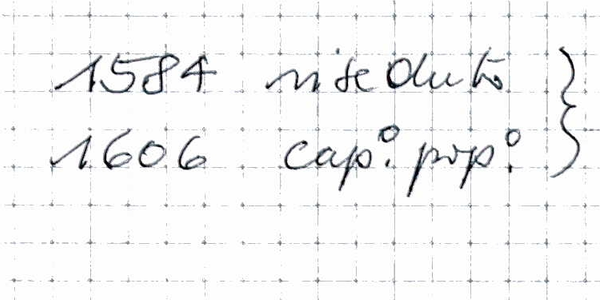 1584 riseduto }
1606 cap.º pop.º